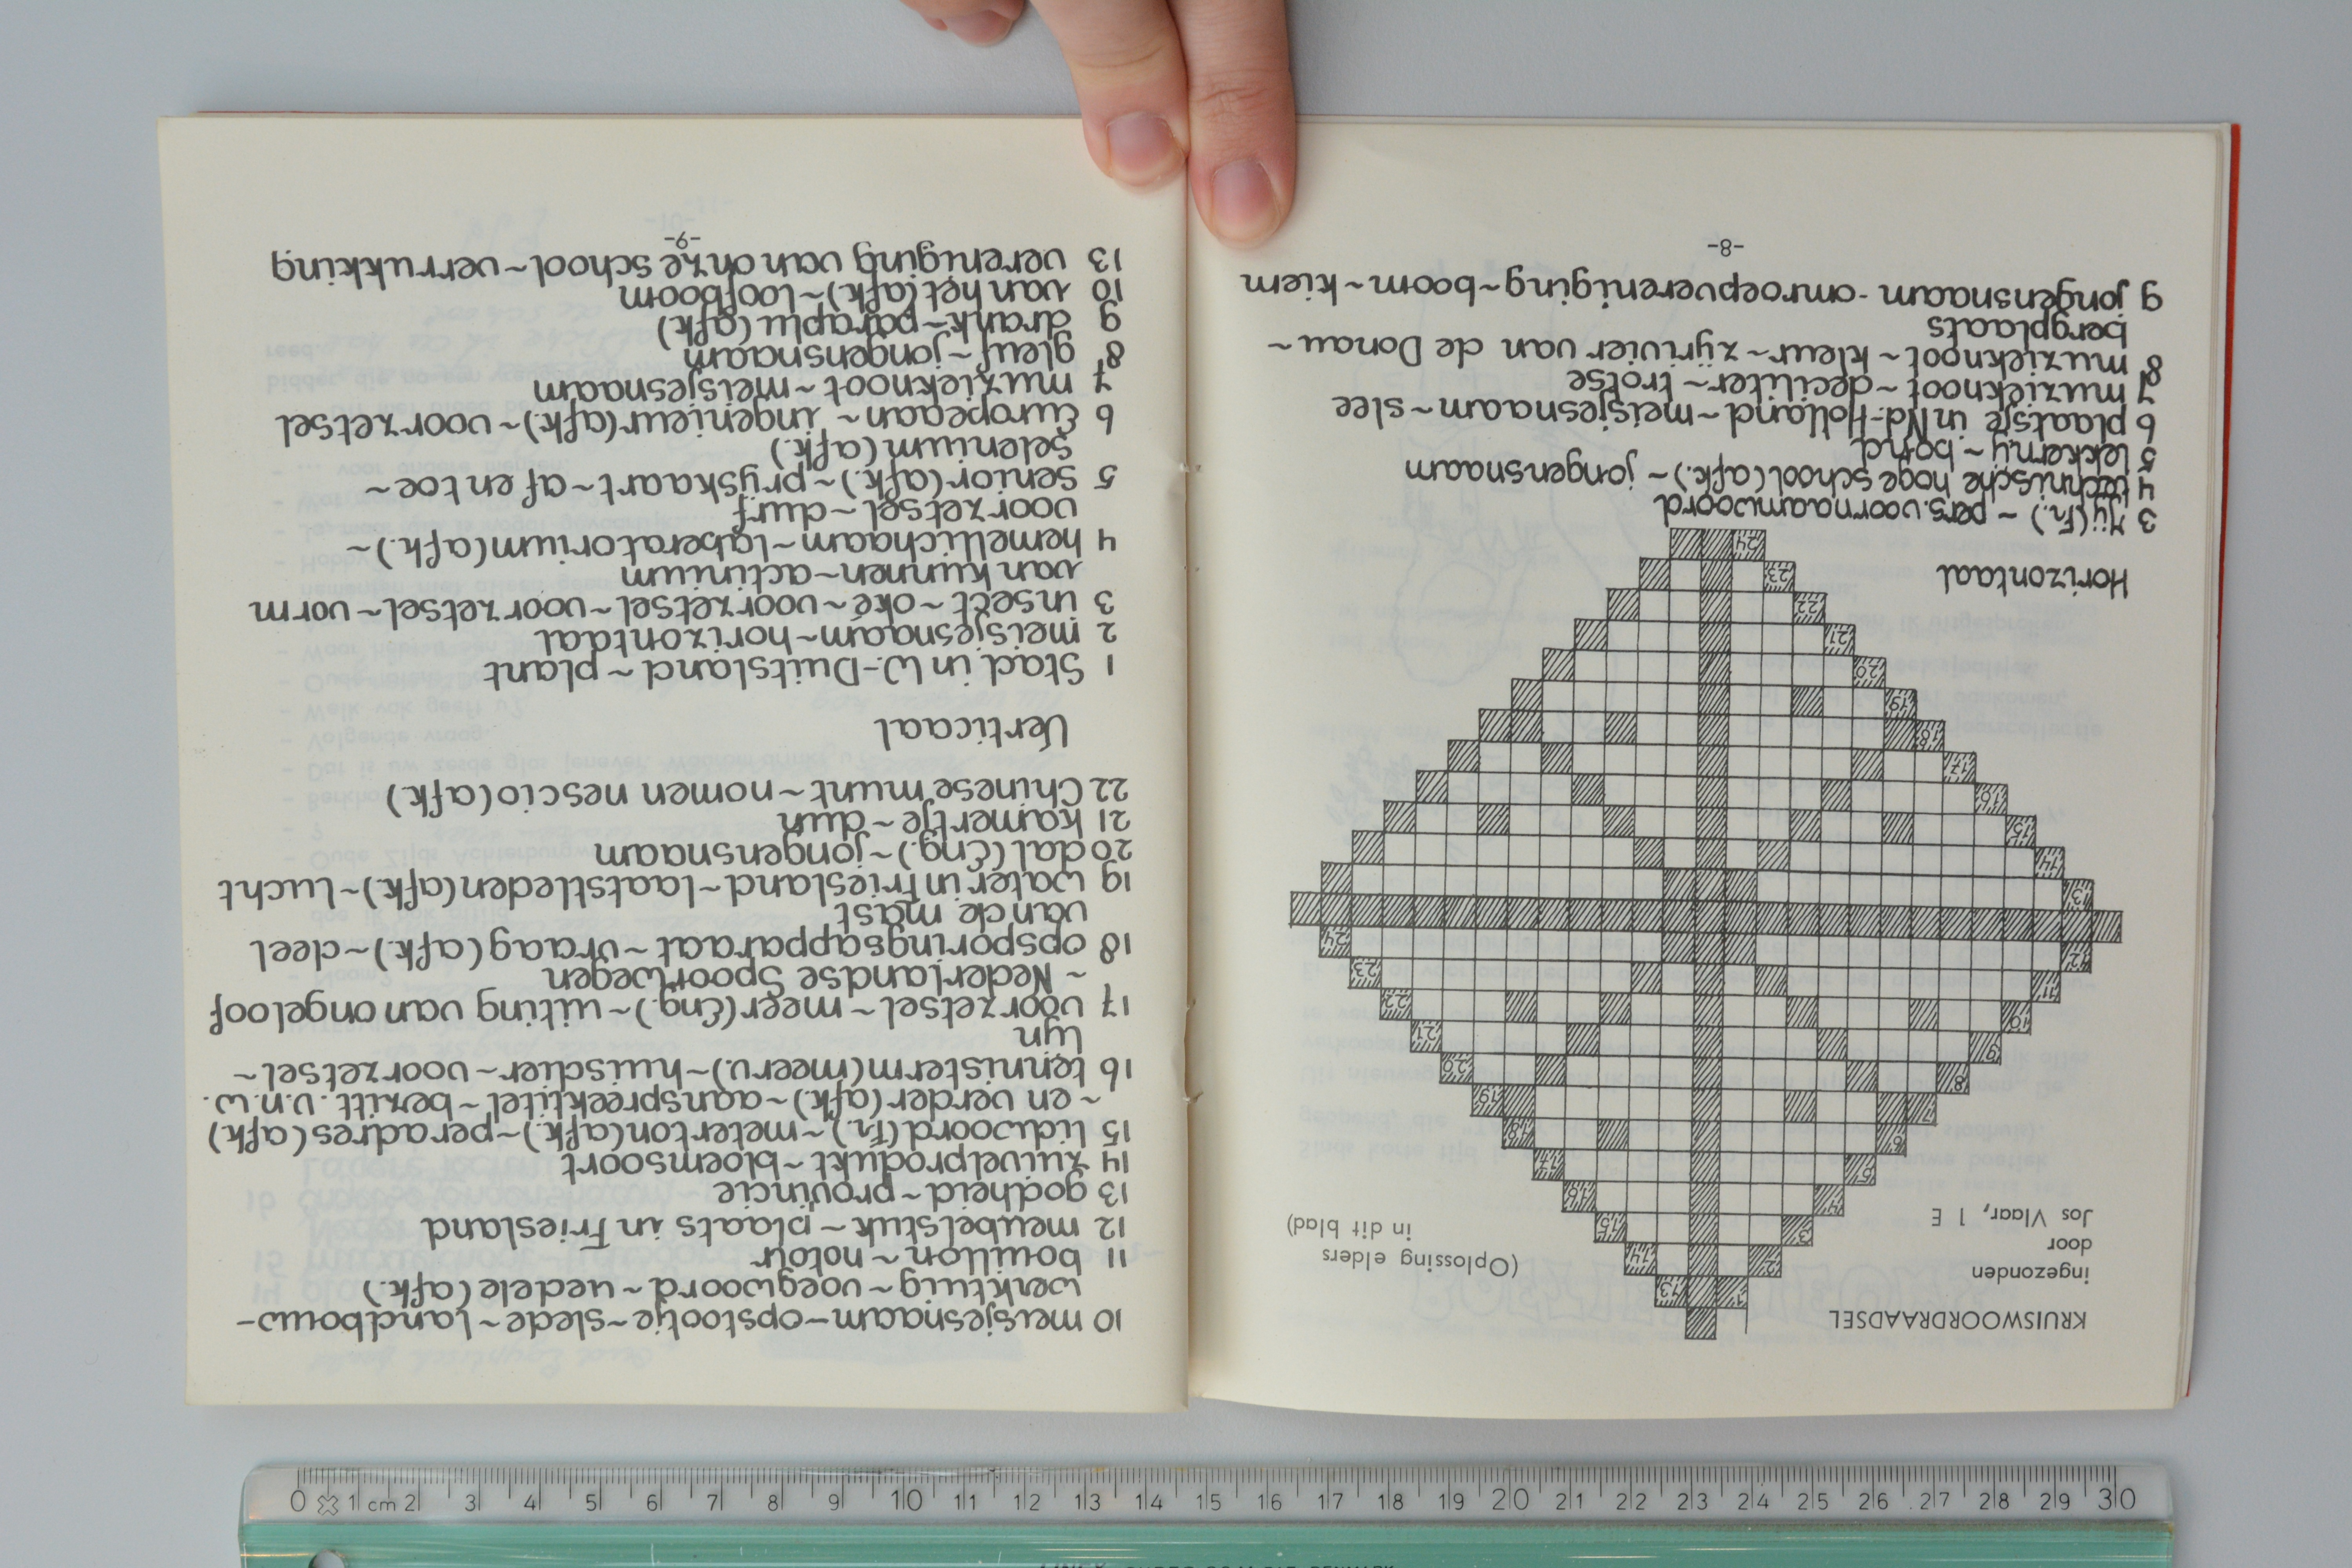 KRUISWOORDRAADSEL
ingezonden
door
Jos Vlaar, 1 E
(Oplossing elders
in dit blad)
Horizontaal
3 Zij (Fr.) ~ pers. voornaamwoord
4 technische hoge school (afk.) ~ jongensnaam
5 lekkernij ~ bond
6 plaatsje in Nd-Holland ~ meisjesnaam ~ slee
7 muzieknoot ~ deciliter ~ trotse
8 muzieknoot ~ kleur ~ zijrivier van de Donau ~
bergplaats
9 jongensnaam - omroepvereniging ~ boom ~ kiem
-8-
10 meisjesnaam - opstootje ~ slede ~ landbouw-
werktuig ~ voegwoord ~ uedele (afk.)
11 bouillon ~ notoir
12 meubelstuk ~ plaats in Friesland
13 godheid ~ provincie
14 zuivelprodukt ~ bloemsoort
15 lidwoord (Fr.) ~ meterton (afk.) ~ per adres (afk)
~ en verder (afk.) ~ aanspreektitel ~ bezitt. v.n.w.
16 tennisterm (meerv.) ~ huisdier ~ voorzetsel ~
lijn
17 voorzetsel ~ meer (Eng.) ~ uiting van ongeloof
~ Nederlandse Spoorwegen
18 opsporingsapparaat ~ vraag (afk.) ~ deel
van de mast
19 water in Friesland ~ laatstleden (afk.) ~ lucht
20 dal (Eng.) ~ jongensnaam
21 kamertje ~ dun
22 Chinese munt ~ nomen nescio (afk.)
Verticaal
1 Stad in W.-Duitsland ~ plant
2 meisjesnaam ~ horizontaal
3 insect ~ oké ~ voorzetsel ~ voorzetsel ~ vorm
van kunnen ~ actinium
4 hemellichaam ~ laboratorium (afk.) ~
voorzetsel ~ durf
5 Senior (afk.) ~ prijskaart ~ af en toe ~
Selenium (afk.)
6 Europeaan ~ ingenieur (afk.) ~ voorzetsel
7 muzieknoot ~ meisjesnaam
8 gleuf ~ jongensnaam
9 drank ~ paraplu (afk)
10 van het (afk.) ~ loofboom
13 vereniging van onze school ~ verrukking
-9-
0 1 cm 2 3 4 5 6 7 8 9 10 11 12 13 14 15 16 17 18 19 20 21 22 23 24 25 26 27 28 29 30